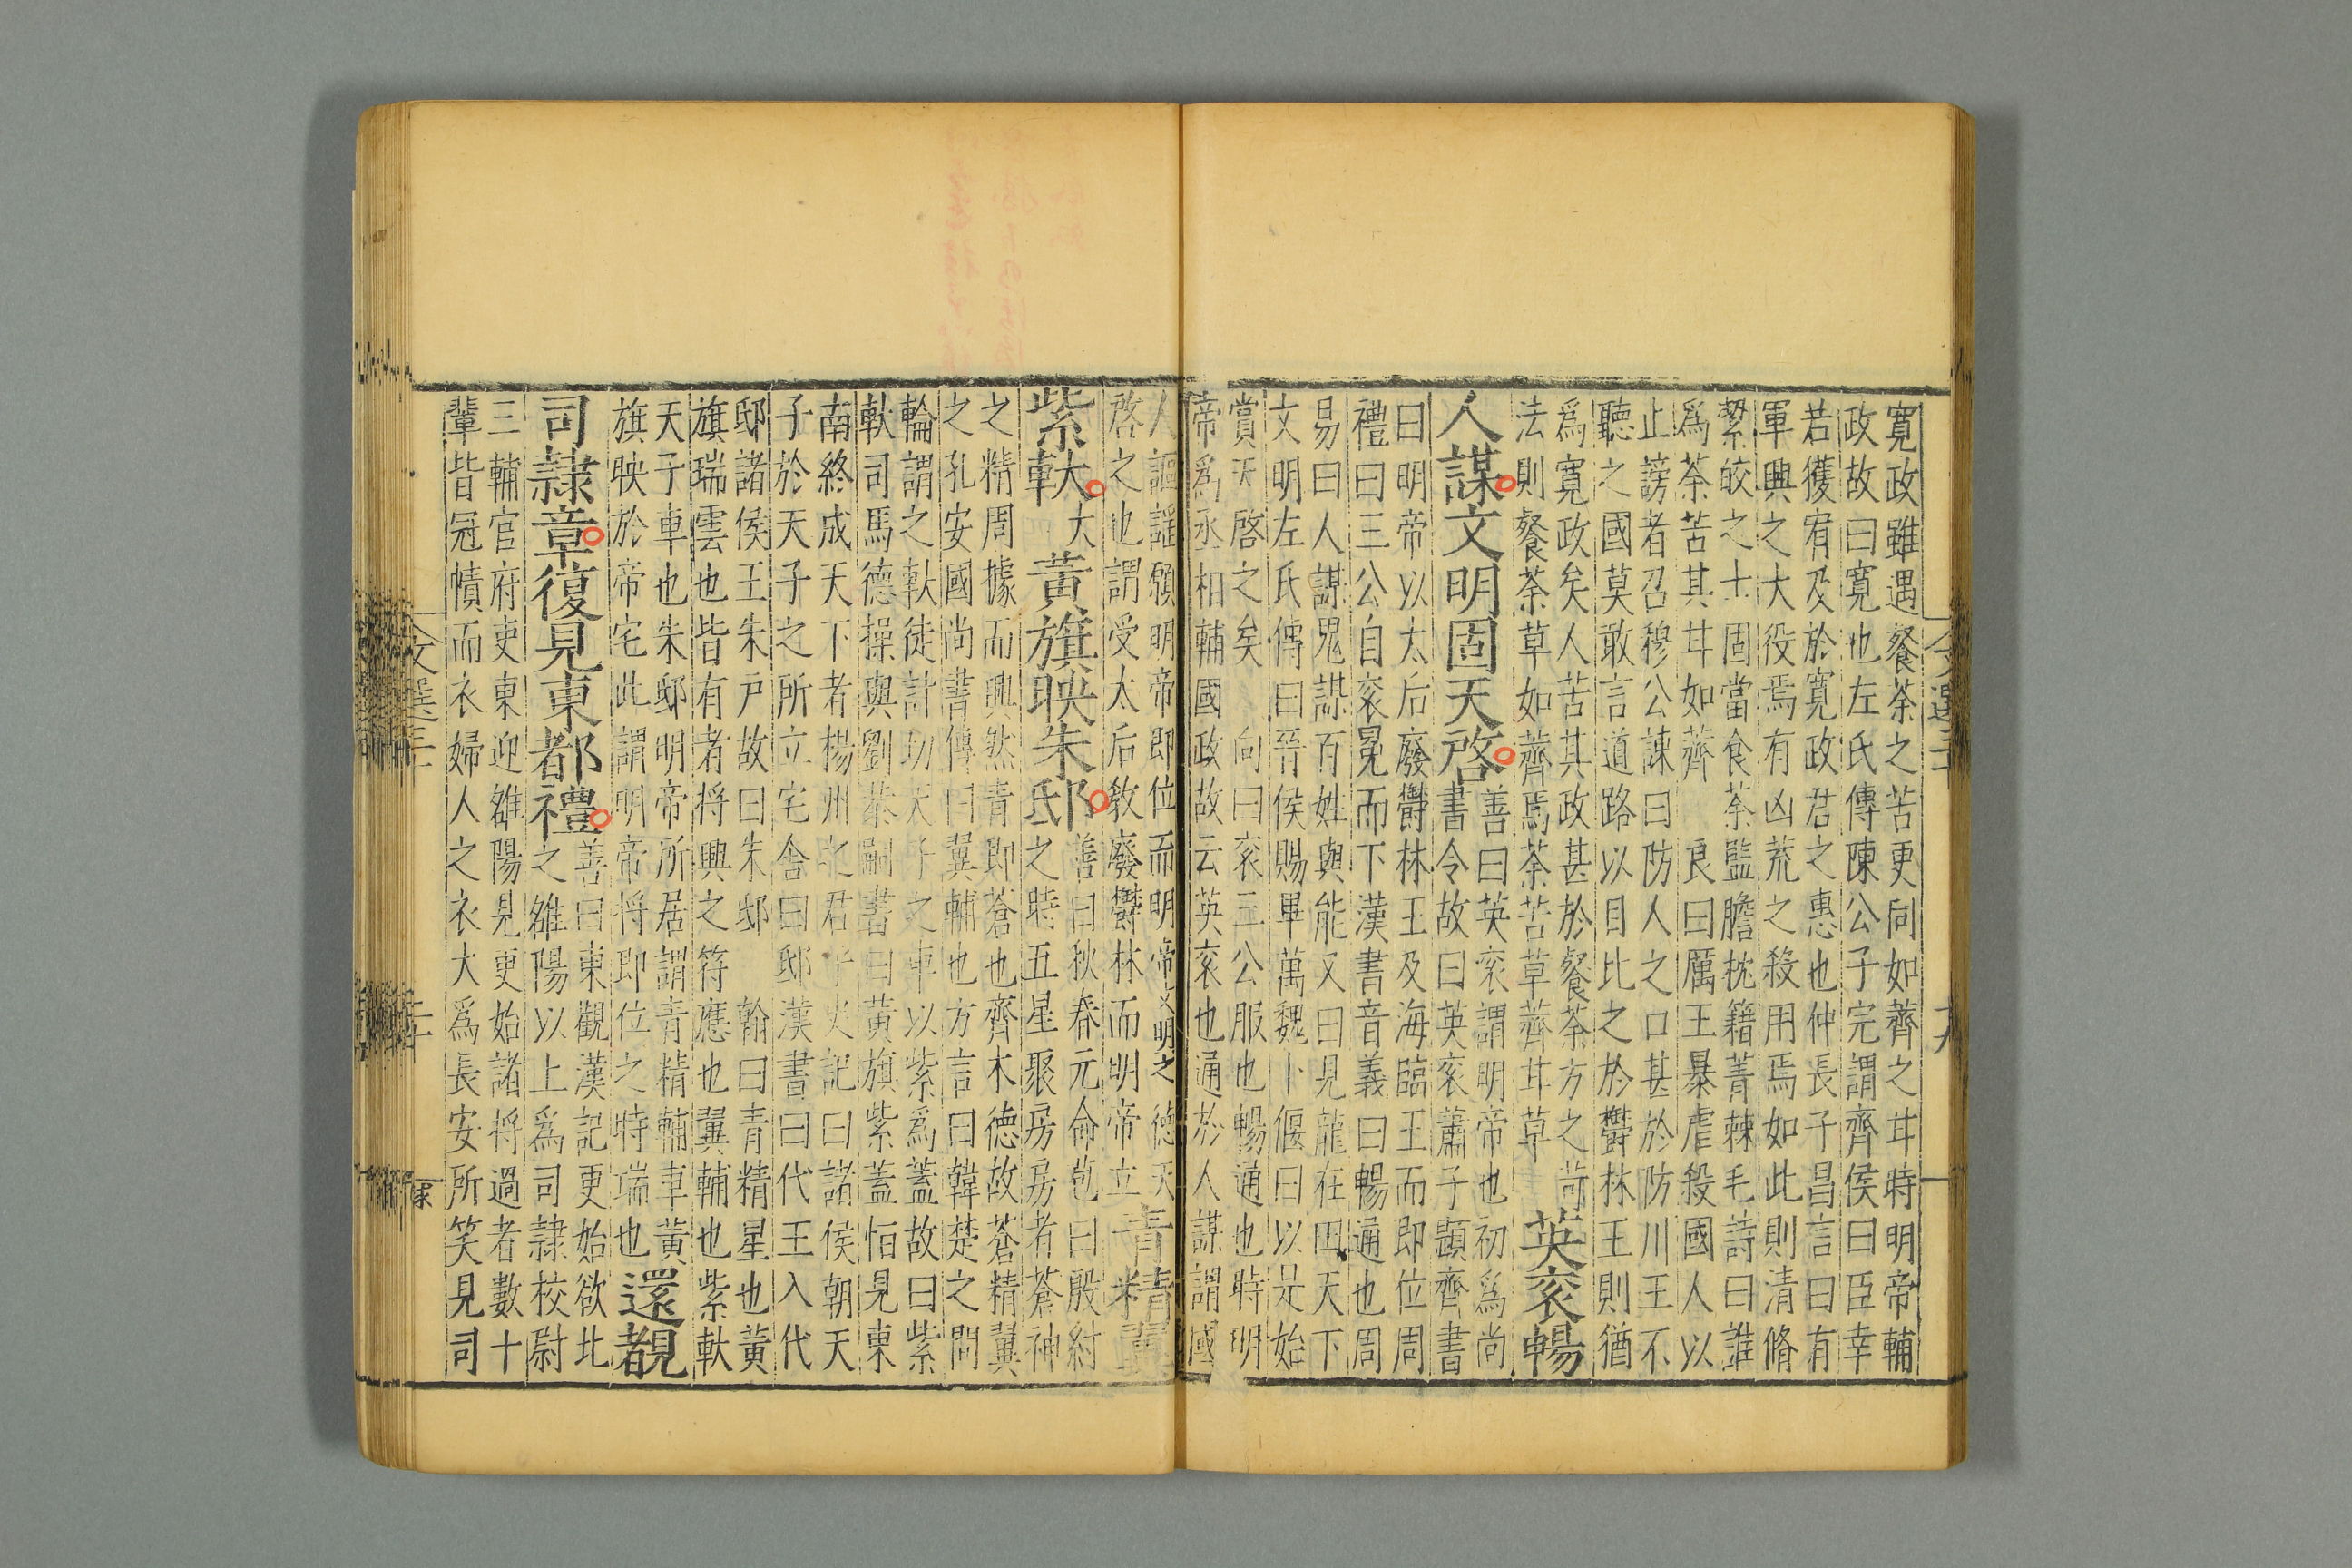 寬政雖遇餐荼之苦更同如薺之甘時明帝輔
政故曰寬也左氏傳陳公子完謂齊侯曰臣幸
若獲宥及於寬政君之惠也仲長子昌言曰有
軍興之大役焉有凶荒之殺用焉如此則清脩
絜皎之士固當食荼監膽枕籍菁棘毛詩曰誰
為荼苦其甘如薺 良曰厲王暴虐殺國人以
止謗者召穆公諫曰防人之口甚於防川王不
聽之國莫敢言道路以目比之於欝林王則猶
為寬政矣人苦其政甚於餐荼方之苛
法則餐荼草如薺焉荼苦草薺甘草
英衮暢
人謀文明固天啓
善曰英衮謂明帝也初為尚
書令故曰英衮蕭子顯齊書
曰明帝以太后廢欝林王及海臨王而即位周
禮曰三公自衮冕而下漢書音義曰暢通也周
易曰人謀鬼謀百姓與能又曰見龍在田天下
文明左氏傳曰晉侯賜畢萬魏卜偃曰以是始
賞天啓之矣 向曰衮三公服也暢通也時明
帝為丞相輔國政故云英衮也通於人謀謂國
人謳謠願明帝即位而明帝文明之德天
啓之也謂受太后敎廢欝林而明帝立
青精翼
紫軑
大
黃旗映朱邸
善曰秋春元命苞曰殷紂
之時五星聚房房者蒼神
之精周據而興然青即蒼也齊木德故蒼精翼
之孔安國尚書傳曰翼輔也方言曰韓楚之間
輪謂之軑徒計切天子之車以紫為蓋故曰紫
軑司馬德操與劉恭嗣書曰黃旗紫蓋恒見東
南終成天下者楊州之君子史記曰諸侯朝天
子於天子之所立宅舍曰邸漢書曰代王入代
邸諸侯王朱戶故曰朱邸 翰曰青精星也黃
旗瑞雲也皆有者將興之符應也翼輔也紫軑
天子車也朱邸明帝所居謂青精輔車黃
旗映於帝宅此謂明帝將即位之時端也
還覩
司隷章復見東都禮
善曰東觀漢記更始欲北
之雒陽以上為司隷校尉
三輔官府吏東迎雒陽見更始諸將過者數十
輩皆冠幘而衣婦人之衣大為長安所笑見司
文選三